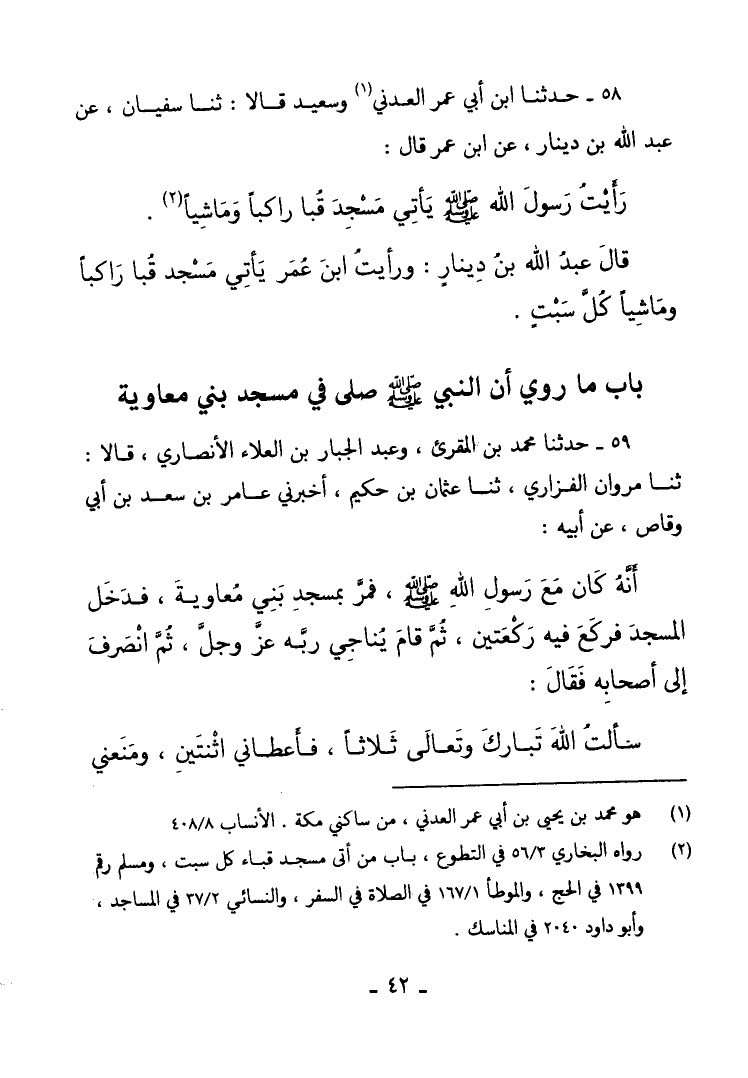 ٥٨ ـ حـدثنـا ابن أبي عمر العـدني(١) وسعيـد قـالا : ثنـا سفيـان ، عن
عبد الله بن دينار ، عن ابن عمر قال :
رَأَيْتُ رَسولَ الله ﷺ يَأتِي مَسْجِدَ قُبا راكباً وَمَاشِياً(٢) .
قالَ عبدُ الله بنُ دِينارٍ : ورأيتُ ابنَ عُمَر يَأتِي مَسْجد قُبا رَاكباً
ومَاشِياً كُلَّ سَبْتٍ .
باب ما روي أن النبي ﷺ صلى في مسجد بني معاوية
٥٩ ـ حدثنا محمد بن المقرئ ، وعبد الجبار بن العلاء الأنصاري ، قـالا :
ثنـا مروان الفـزاري ، ثنـا عثمان بن حكيم ، أخبرني عـامر بن سعـد بن أبي
وقاص ، عن أبيه :
أَنَّهُ كَان مَعَ رَسولِ اللهِ ﷺ ، فمرَّ بمسجدِ بَنِي مُعاويـةَ ، فـدَخَل
المسجدَ فركَعَ فيه رَكْعَتين ، ثُمَّ قامَ يُناجِي ربَّـه عزَّ وجلَّ ، ثُمَّ انْصَرفَ
إلى أصحابِه فَقَالَ :
سـألتُ اللهَ تَبـاركَ وتَعـالَى ثَـلاثـاً ، فـأَعطـاني اثْنتَينِ ، ومنَعني
(١) هو محمد بن يحيى بن أبي عمر العدني ، من ساكني مكة . الأنساب ٤٠٨/٨
(٢) رواه البخاري ٥٦/٣ في التطوع ، بـاب من أتى مسجـد قبـاء كل سبت ، ومسلم رقم
١٣٩٩ في الحج ، والموطأ ١٦٧/١ في الصلاة في السفر ، والنسائي ٣٧/٢ في المساجد ،
وأبو داود ٢٠٤٠ في المناسك .
ـ ٤٢ ـ